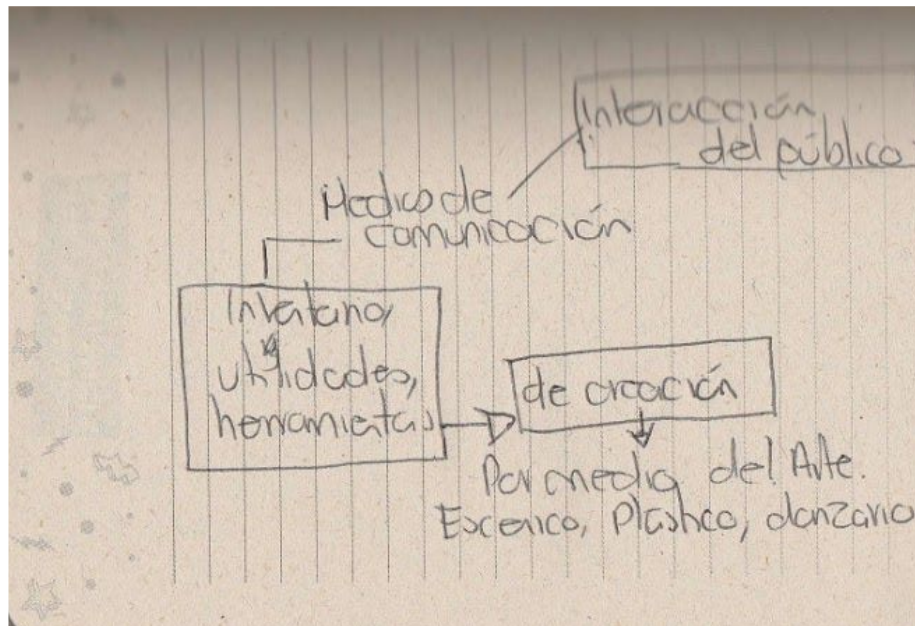 Interacción
del público
Medios de
comunicación
Inventario,
utilidades,
herramientas
de creación
Por medio del Arte.
Escenico, Plastico, danzario